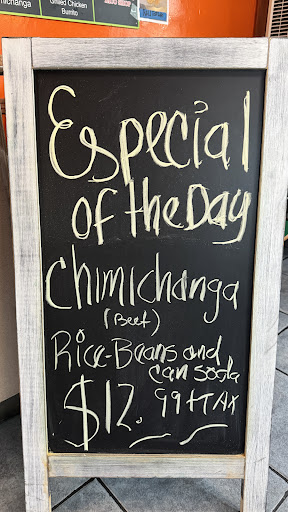 michanga
Grilled Chicken
Burrito
Especial
of the Day
Chimichanga
(Beef)
Rice-Beans and
can soda
$12.99+TAX